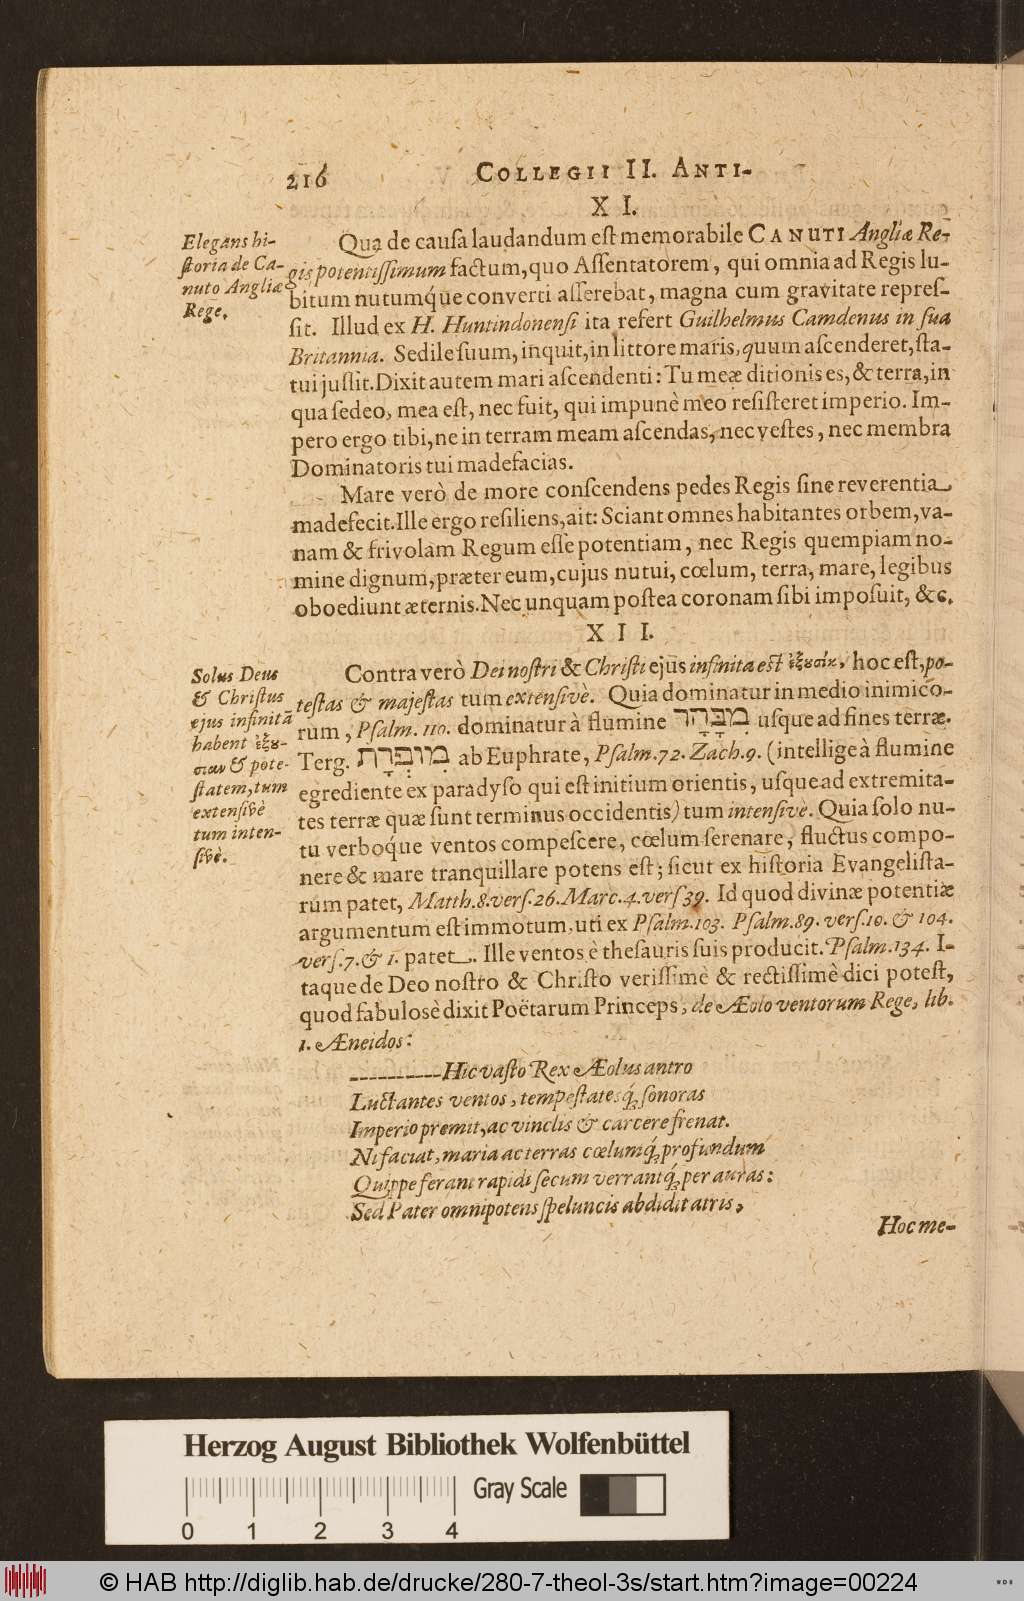 216 COLLEGII II. ANTI-
XI.
Elegans hi-
storia de Ca-
nuto Angliæ
Rege.
Qua de causa laudandum est memorabile CANUTI Angliæ Re-
gis potentissimum factum, quo Assentatorem, qui omnia ad Regis lu-
bitum nutumq́ue converti asserebat, magna cum gravitate repres-
sit. Illud ex H. Huntindonensi ita refert Guilhelmus Camdenus in sua
Britannia. Sedile suum, inquit, in littore maris, quum ascenderet, sta-
tui jussit. Dixit autem mari ascendenti: Tu meæ ditionis es, & terra, in
qua sedeo, mea est, nec fuit, qui impunè meo resisteret imperio. Im-
pero ergo tibi, ne in terram meam ascendas, nec vestes, nec membra
Dominatoris tui madefacias.
Mare verò de more conscendens pedes Regis sine reverentia
madefecit. Ille ergo resiliens, ait: Sciant omnes habitantes orbem, va-
nam & frivolam Regum esse potentiam, nec Regis quempiam no-
mine dignum, præter eum, cujus nutui, cœlum, terra, mare, legibus
oboediunt æternis. Nec unquam postea coronam sibi imposuit, &c.
XII.
Solus Deus
& Christus
ejus infinitā
habent ἐξȣ-
σιαν & pote-
statem, tum
extensivè
tum inten-
sivè.
Contra verò Dei nostri & Christi ejus infinita est ἐξȣσία, hoc est, po-
testas & majestas tum extensivè. Quia dominatur in medio inimico-
rum, Psalm. 110. dominatur à flumine מִנָּהָר usque ad fines terræ.
Terg. מִופְּרָת ab Euphrate, Psalm. 72. Zach. 9. (intellige à flumine
egrediente ex paradyso qui est initium orientis, usque ad extremita-
tes terræ quæ sunt terminus occidentis) tum intensivè. Quia solo nu-
tu verboq́ue ventos compescere, cœlum serenare, fluctus compo-
nere & mare tranquillare potens est; sicut ex historia Evangelista-
rum patet, Matth. 8. vers. 26. Marc. 4. vers 39. Id quod divinæ potentiæ
argumentum est immotum, uti ex Psalm. 103. Psalm. 89. vers. 10. & 104.
vers. 7. & 1. patet. Ille ventos è thesauris suis producit. Psalm. 134. I-
taque de Deo nostro & Christo verissimè & rectissimè dici potest,
quod fabulosè dixit Poëtarum Princeps, de Æolo ventorum Rege, lib.
1. Æneidos:
----------Hic vasto Rex Æolus antro
Luctantes ventos, tempestatesq́; sonoras
Imperio premit, ac vinclis & carcere frenat.
Ni faciat, maria ac terras cœlumq́; profundum
Quippe ferant rapidi secum verrantq́; per auras:
Sed Pater omnipotens speluncis abdidit atris,
Hoc me-
Herzog August Bibliothek Wolfenbüttel
Gray Scale
0 1 2 3 4
© HAB http://diglib.hab.de/drucke/280-7-theol-3s/start.htm?image=00224